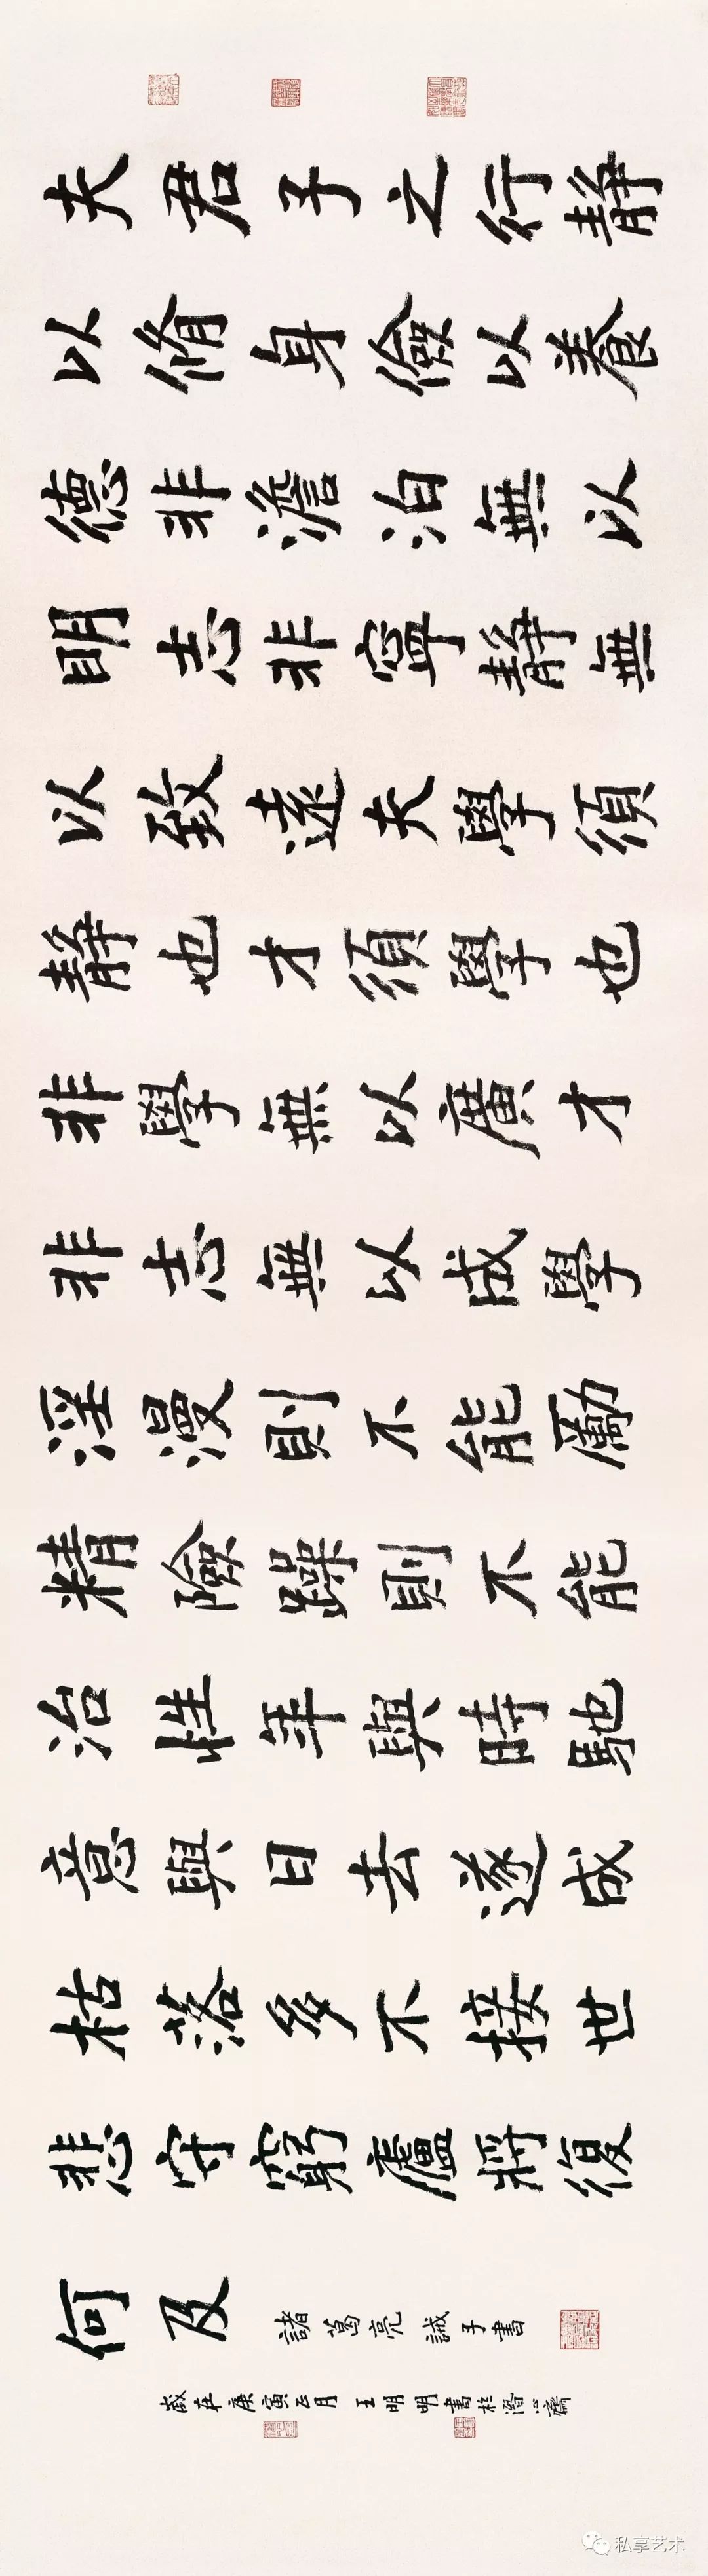 夫君子之行静
以脩身儉以養
德非澹泊無以
明志非寧静無
以致遠夫學須
静也才須學也
非學無以廣才
非志無以成學
淫漫則不能勵
精險躁則不能
治性年與時馳
意與日去遂成
枯落多不接世
悲守窮廬將復
何及 諸葛亮 誡子書
歲在庚寅正月 王明明書於潛心齋
私享艺术